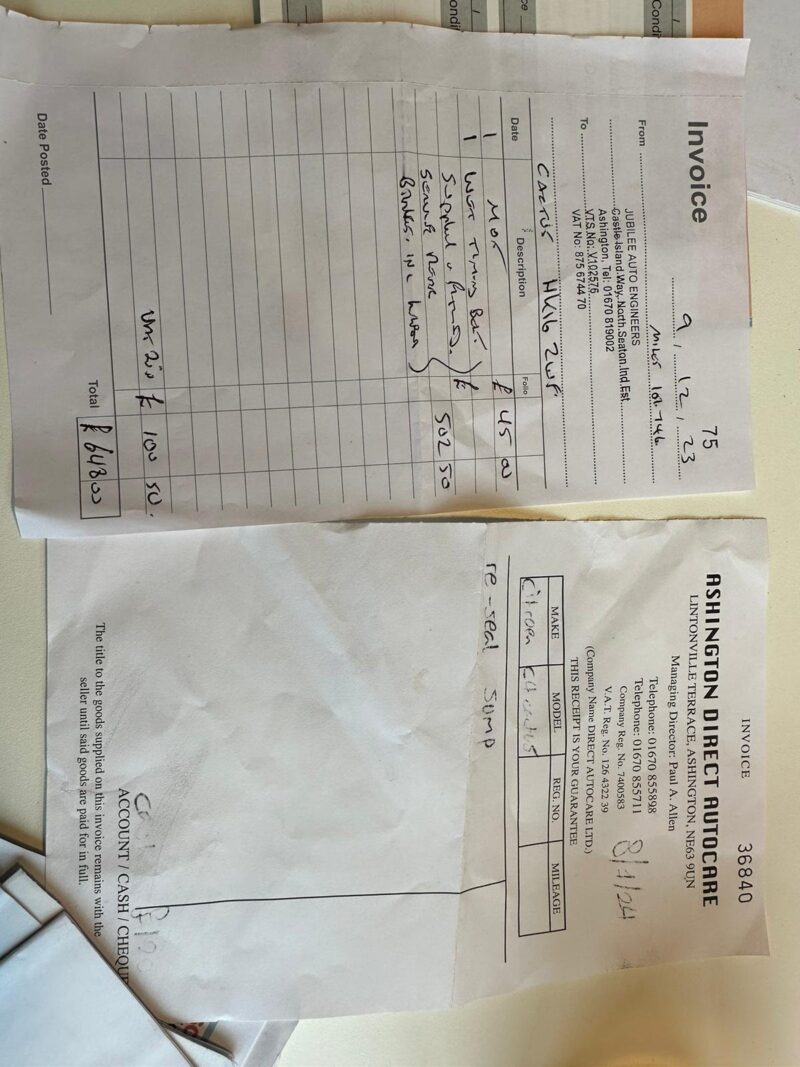 Invoice
75
9 / 12 / 23
From
JUBILEE AUTO ENGINEERS
Miles 101.746
Castle Island Way, North Seaton Ind.Est.
Ashington, Tel: 01670 819002
To
V.T.S.No: V102576
VAT No: 875 6744 70
CACTUS HK16
Date Description Folio
1 MOT £ 45 00
1 Wet Timing Belt
Supplied & £ 502 50
Brakes. INC
£ 100 50.
Total £ 648 00
Date Posted
INVOICE 36840
ASHINGTON DIRECT AUTOCARE
LINTONVILLE TERRACE, ASHINGTON, NE63 9UN
Managing Director: Paul A. Allen
Telephone: 01670 855898
Telephone: 01670 855711
Company Reg. No. 7400583
V.A.T. Reg. No. 126 4322 39
8/1/24
(Company Name DIRECT AUTOCARE LTD.)
THIS RECEIPT IS YOUR GUARANTEE
MAKE MODEL REG. NO. MILEAGE
Citroen
re-seal sump
ACCOUNT / CASH / CHEQUE
The title to the goods supplied on this invoice remains with the
seller until said goods are paid for in full.